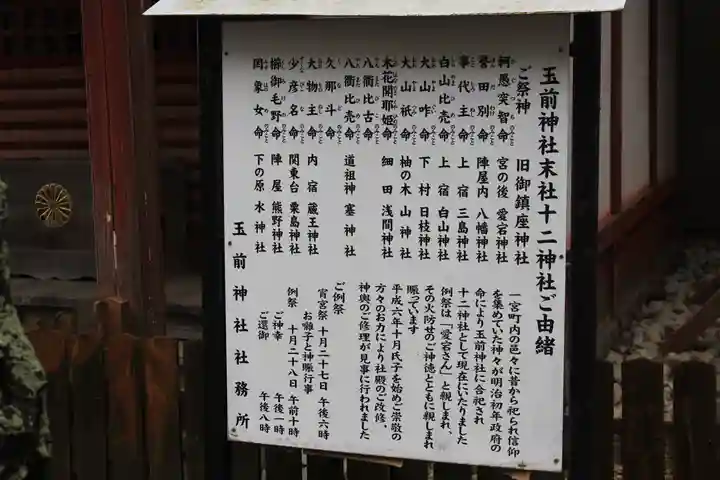 玉前神社末社十二神社ご由緒
ご祭神 旧御鎮座神社
軻愚突智命 宮の後 愛宕神社
誉田別命 陣屋内 八幡神社
事代主命 上宿 三島神社
白山比売命 上宿 白山神社
大山咋命 下村 日枝神社
大山祇命 柚の木 山神社
木花開耶姫命 細田 浅間神社
八衢比古命
八衢比売命 道祖神 塞神社
久那斗命
大物主命 内宿 蔵王神社
少彦名命 関東台 粟島神社
櫛御毛野命 陣屋 熊野神社
罔象女命 下の原 水神社
一宮町内の邑々に昔から祀られ信仰
を集めていた神々が明治初年政府の
命により玉前神社に合祀され
十二神社として現在にいたりました
例祭は「愛宕さん」と親しまれ、
その火防せのご神徳とともに親しまれ
賑っています
平成六年十月氏子を始めご崇敬の
方々のお力により社殿のご改修、
神輿のご修理が見事に行われました
ご例祭
宵宮祭 十月二十七日 午後六時
お囃子と神賑行事
例祭 十月二十八日 午前十時
ご神幸 午後一時
ご還御 午後八時
玉前神社社務所